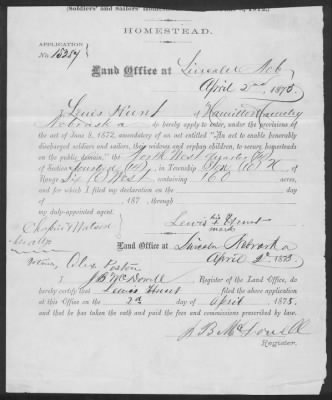 (Soldiers' and Sailors'
HOMESTEAD.
APPLICATION
No. 15254
Land Office at Lincoln Neb
April 2nd 1875.
I, Lewis Hunt of Hamilton County
Nebraska do hereby apply to enter, under the provisions of
the act of June 8, 1872, amendatory of an act entitled "An act to enable honorably
discharged soldiers and sailors, their widows and orphan children, to secure homesteads
on the public domain," the North West quarter
of Section in Township Ten (10) N of
Range Six (6) West, containing 160 acres,
and for which I filed my declaration on the
day of 187, through
my duly-appointed agent.
Lewis his X Hunt
mark
Charles
Land Office at Lincoln Nebraska
April 2nd 1875.
Witness, Alex
I, J B McDowell, Register of the Land Office, do
hereby certify that Lewis Hunt filed the above application
at this Office on the 2nd day of April 1875.
and that he has taken the oath and paid the fees and commissions prescribed by law.
J B McDowell
Register.